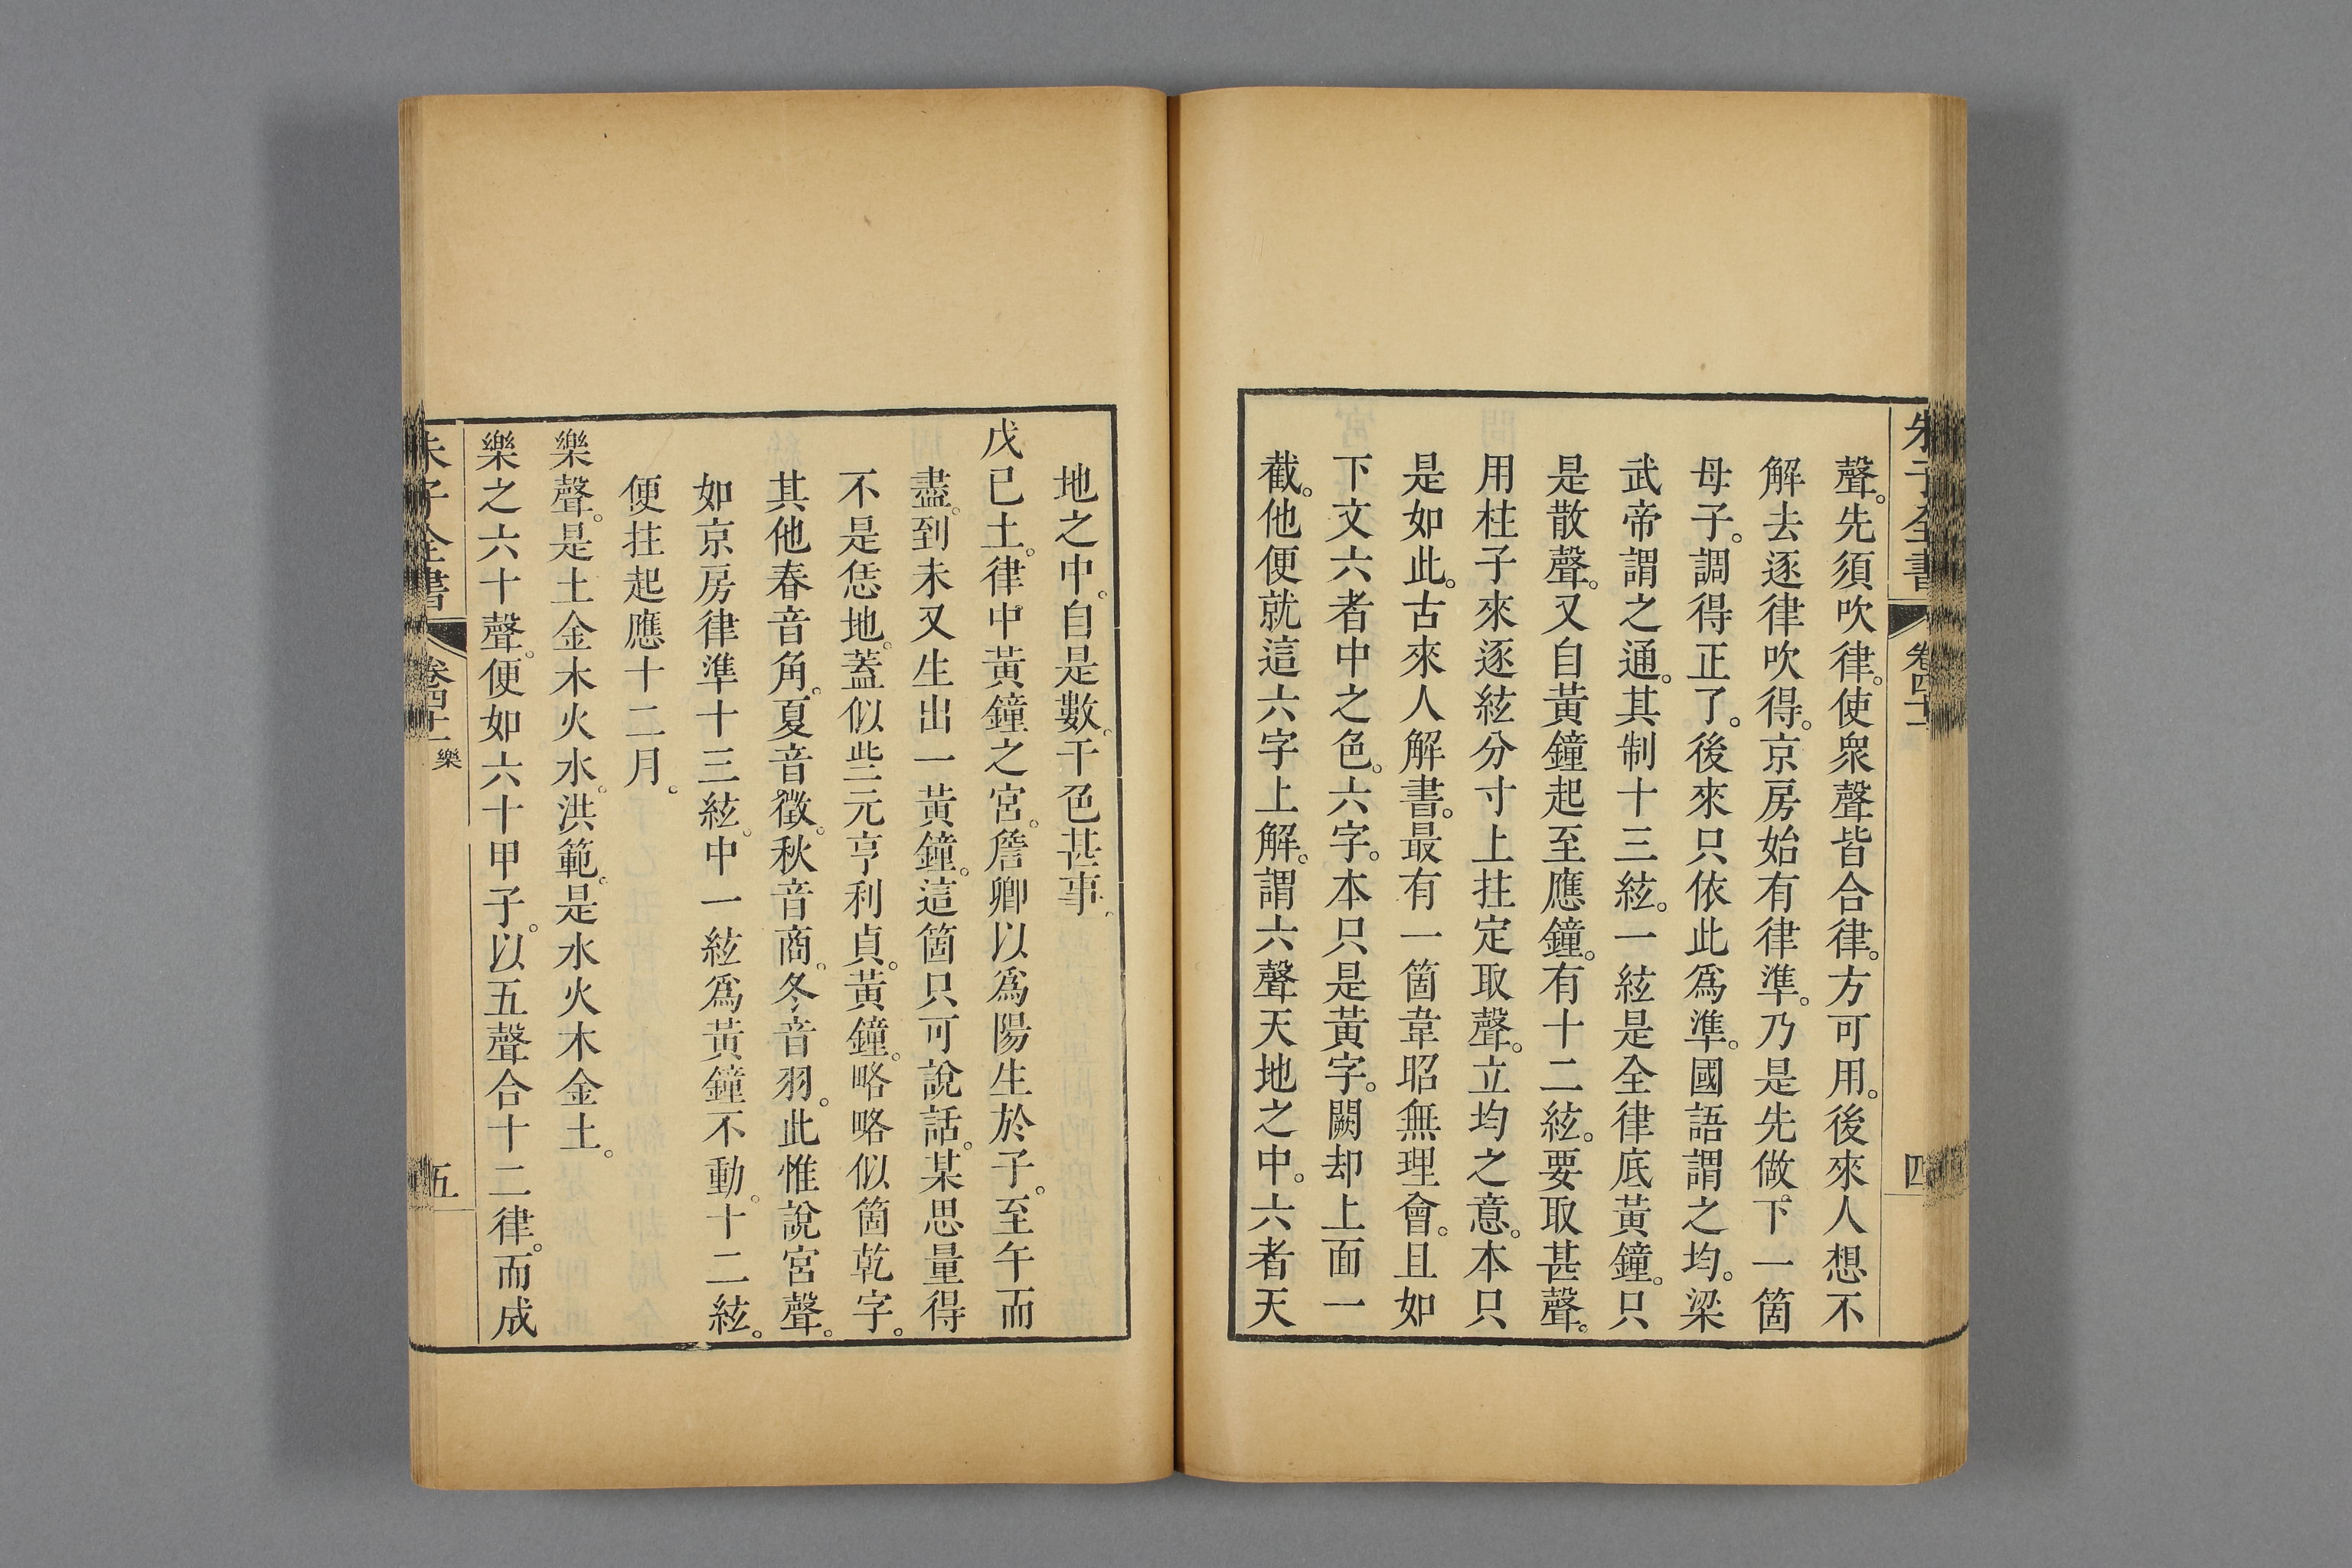 朱子全書 卷四十一 四
聲。先須吹律。使衆聲皆合律。方可用。後來人想不
解去逐律吹得。京房始有律準。乃是先做下一箇
母子。調得正了。後來只依此爲準。國語謂之均。梁
武帝謂之通。其制十三絃。一絃是全律底黃鐘。只
是散聲。又自黃鐘起至應鐘。有十二絃。要取甚聲。
用柱子來逐絃分寸上拄定取聲。立均之意。本只
是如此。古來人解書。最有一箇韋昭無理會。且如
下文六者中之色。六字。本只是黃字。闕却上面一
截。他便就這六字上解。謂六聲天地之中。六者天
地之中。自是數。干色甚事。
戊已土。律中黃鐘之宮。詹卿以爲陽生於子。至午而
盡。到未又生出一黃鐘。這箇只可說話。某思量得
不是恁地。蓋似些元亨利貞。黃鐘。略略似箇乾字。
其他春音角。夏音徵。秋音商。冬音羽。此惟說宮聲。
如京房律準十三絃。中一絃爲黃鐘不動。十二絃。
便拄起應十二月。
樂聲。是土金木火水。洪範。是水火木金土。
樂之六十聲。便如六十甲子。以五聲合十二律。而成
朱子全書 卷四十一 樂 五